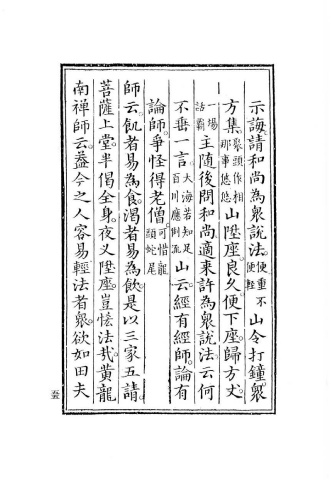 示誨請和尚為衆說法。便重不便輕山令打鐘衆
方集。聚頭作相那事悠悠山陞座良久便下座歸方丈。
一場話霸主隨後問和尚適來許為衆說法。云何
不垂一言。大海若知足百川應倒流山云經有經師。論有
論師。爭怪得老僧可惜龍頭蛇尾
師云。飢者易為食。渴者易為飲。是以三家五請。
菩薩上堂。半偈全身。夜叉陞座。豈恡法哉。黃龍
南禪師云。葢今之人容易輕法者衆。欲如田夫